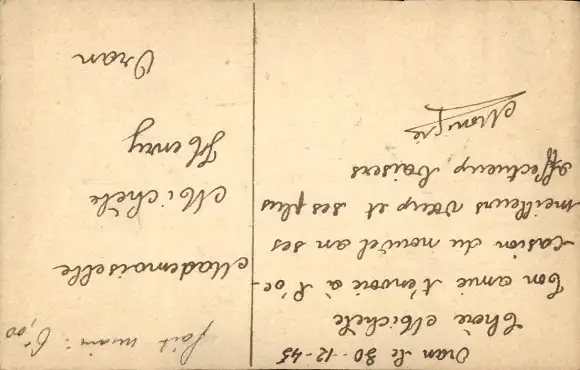 Oran le 30-12-45
Chère Michèle
Ton amie t'envoie à l'oc-
casion du nouvel an ses
meilleurs vœux et ses plus
affectueux baisers
Mademoiselle
Michèle
Henry
Oran
fait main : 6,00